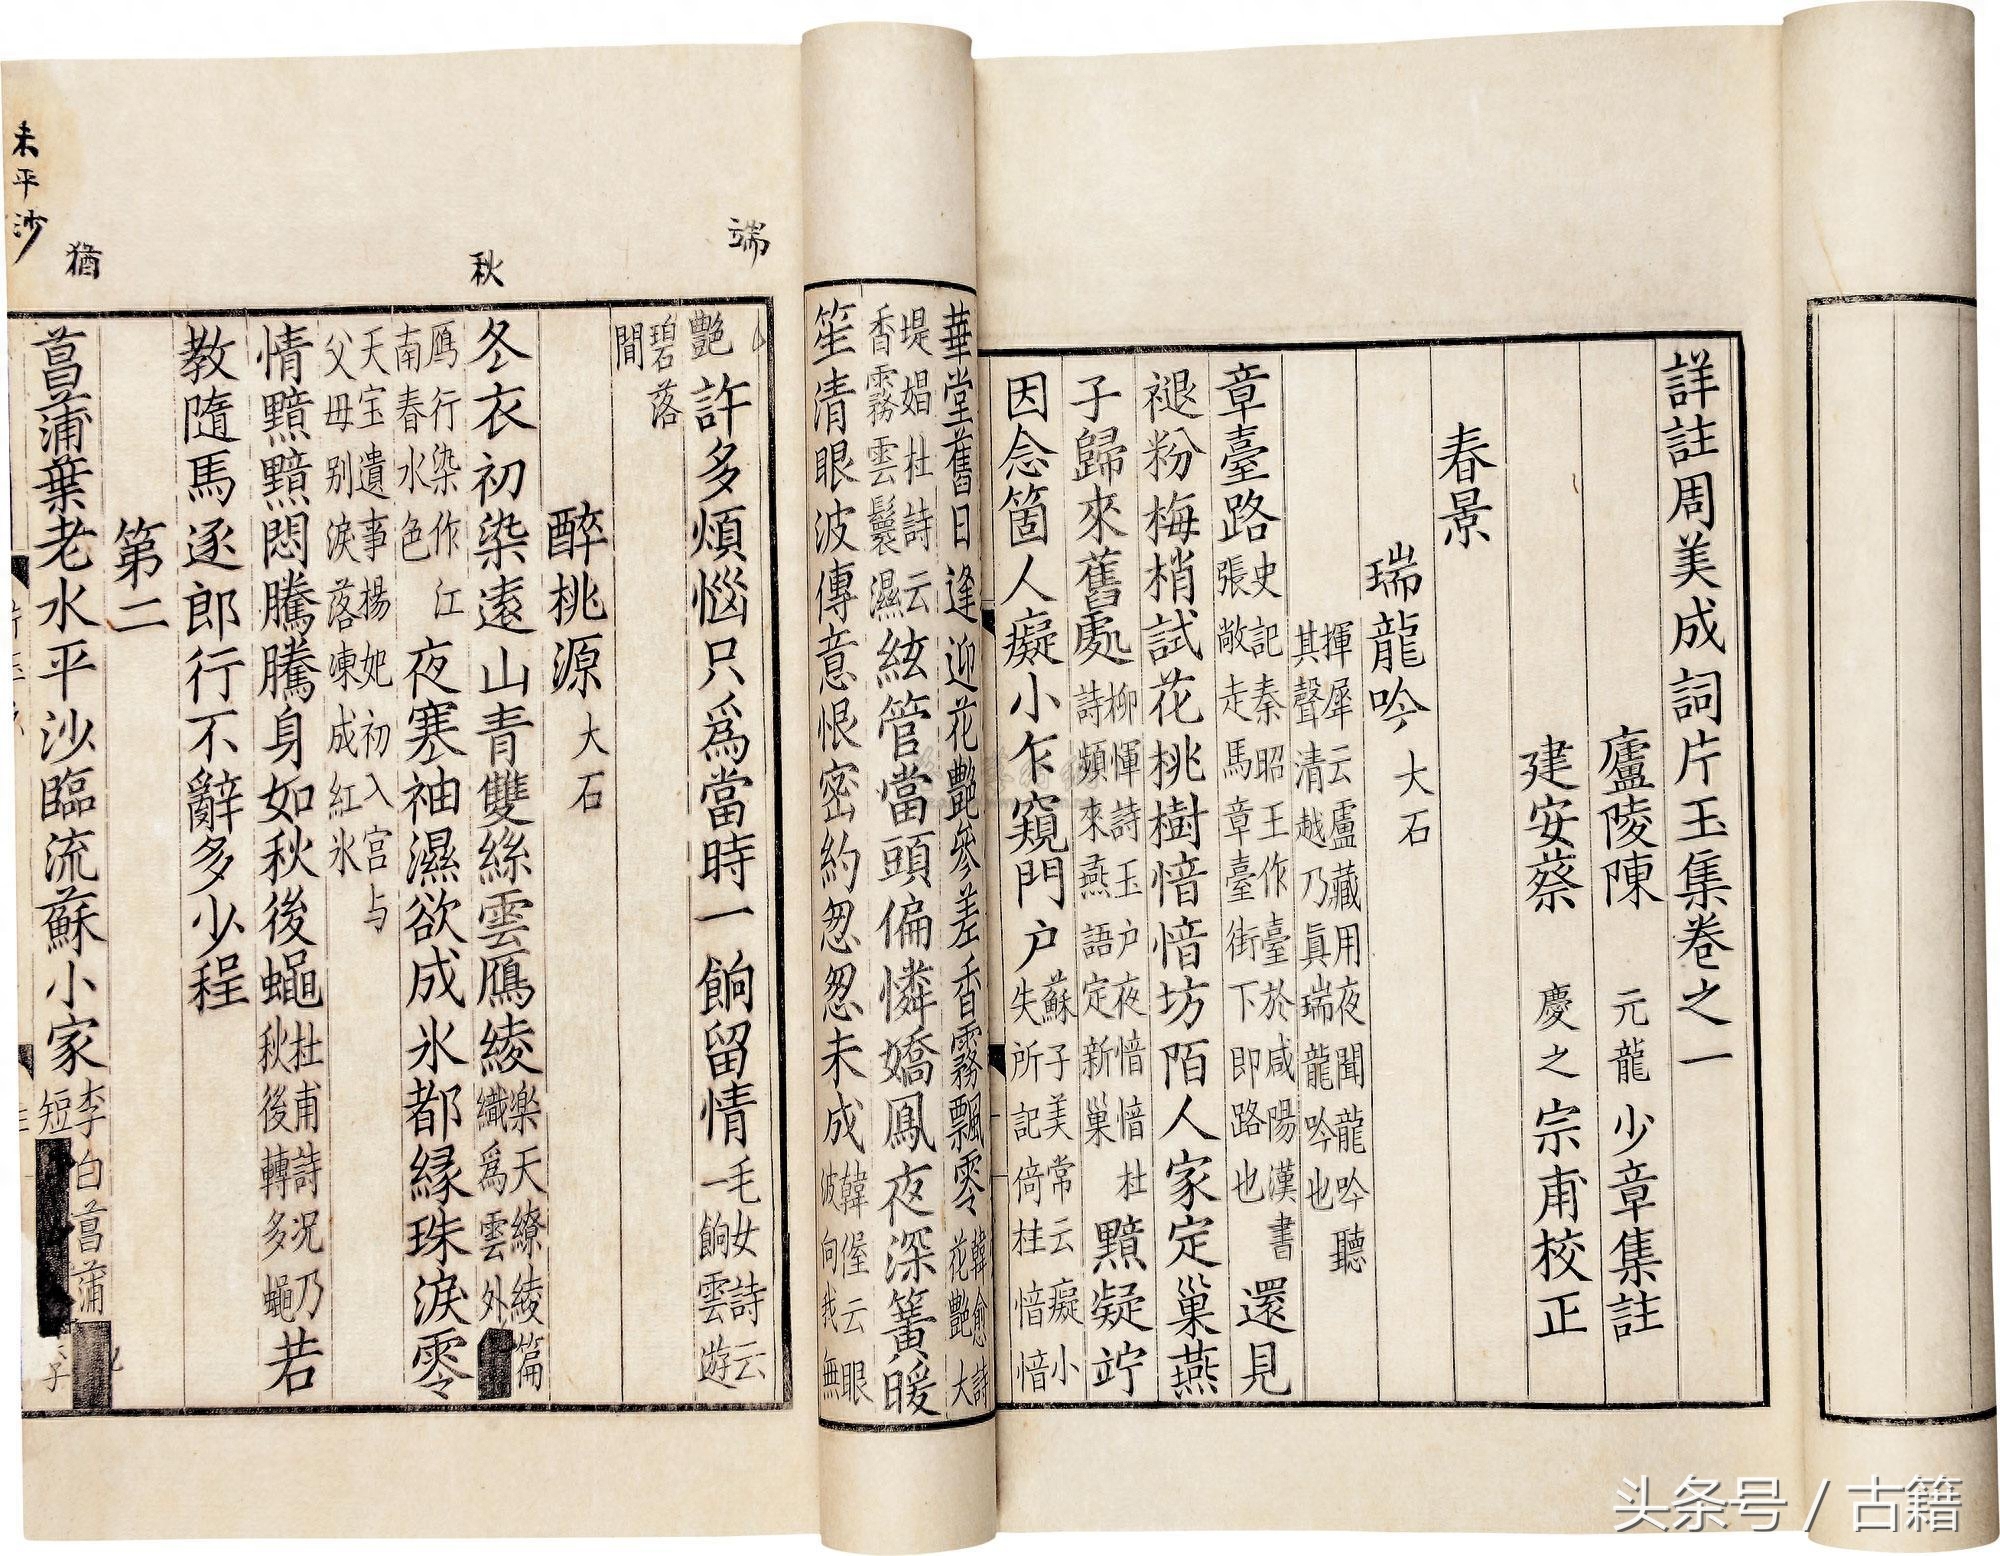 詳註周美成詞片玉集卷之一
廬陵陳 元龍 少章集註
建安蔡 慶之 宗甫校正
春景
瑞龍吟 大石
揮犀云盧藏用夜聞龍吟聽
其聲清越乃眞瑞龍吟也
章臺路 史記秦昭王作臺於咸陽漢書 張敞走馬章臺街下即路也 還見
褪粉梅梢試花桃樹愔愔坊陌人家定巢燕
子歸來舊處 柳惲詩玉户夜愔愔杜 詩頻來燕語定新巢 黯凝竚
因念箇人癡小乍窺門户 蘇子美常云癡小 失所記倚桂愔愔
華堂舊日逢迎花艷參差香霧飄零 韓愈詩 花艷大
堤娼杜詩云 香霧雲鬟濕 絃管當頭偏憐嬌鳳夜深簧暖
笙清眼波傳意恨密約怱怱未成 韓偓云眼 波向我無
端
艷許多煩惱只爲當時一餉留情 毛女詩云 一餉雲遊
碧落
間
醉桃源 大石
秋
冬衣初染遠山青雙絲雲鴈綾 樂天繚綾篇 織爲雲外
鴈行染作江 南春水色 夜寒袖濕欲成氷都緣珠淚零
天宝遺事楊妃初入宫与
父母别淚落凍成紅氷
情黯黯悶騰騰身如秋後蠅 杜甫詩况乃 秋後轉多蠅 若
教隨馬逐郎行不辭多少程
第二
猶
菖蒲葉老水平沙臨流蘇小家 李白菖蒲 短
未平沙
头条号 / 古籍